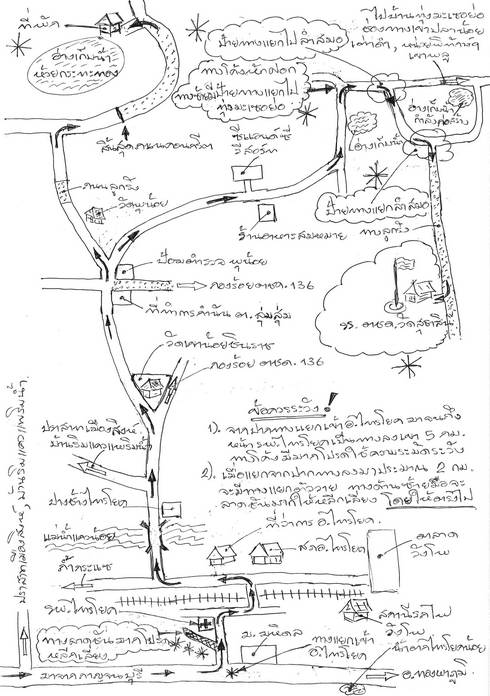 ที่พัก
อ่างเก็บน้ำ
ห้วยกระทะทอง
ป้ายทางแยกไปลำสมอ
ทางโค้งหักศอก
ไปบ้านทุ่งมะเซอย่อ
อ่างเก็บน้ำ
กำลังก่อสร้าง
อ่างเก็บน้ำ
สิ้นสุดถนนคอนกรีต
ซีแลนด์ซี
รีสอร์ท
ถนนลูกรัง
วัดพุน้อย
ป้ายทางแยกลำสมอ
ทางลูกรัง
ร้านอาหารสมหมาย
ป้อมตำรวจ พุน้อย
กองร้อย ตชด. 136
ที่ทำการกำนัน ต. ลุ่มสุ่ม
รร. ตชด. วัดสุธาสินี
วัดเขาน้อยชินราช
กองร้อย ตชด. 136
ข้อควรระวัง !
1). จากปากทางแยกเข้า อ.ไทรโยค มาจนถึง
หน้า รพ.ไทรโยคเป็นทางลงเขา 5 กม.
ทางโค้งมีมากโปรดใช้ความระมัดระวัง
2). เมื่อแยกจากปากทางลงมาประมาณ 2 กม.
จะมีทางแยกซ้ายขวา ทางด้านซ้ายมือจะ
ลาดชันมากให้หลีกเลี่ยง โดยให้ตรงไป
ปราสาทเมืองสิงห์
ปางช้างไทรโยค
แม่น้ำแควน้อย
ที่ว่าการ อ.ไทรโยค.
สภ.อ.ไทรโยค
ตลาด
วังโพ
ถ้ำกระแซ
รพ.ไทรโยค
ทางลาดชันมากโปรด
หลีกเลี่ยง
ม. มหิดล
ทางแยกเข้า
อ.ไทรโยค
สถานีรถไฟ
วังโพ
น้ำตกไทรโยคน้อย
มาจากกาญจนบุรี
อ.ทองผาภูมิ